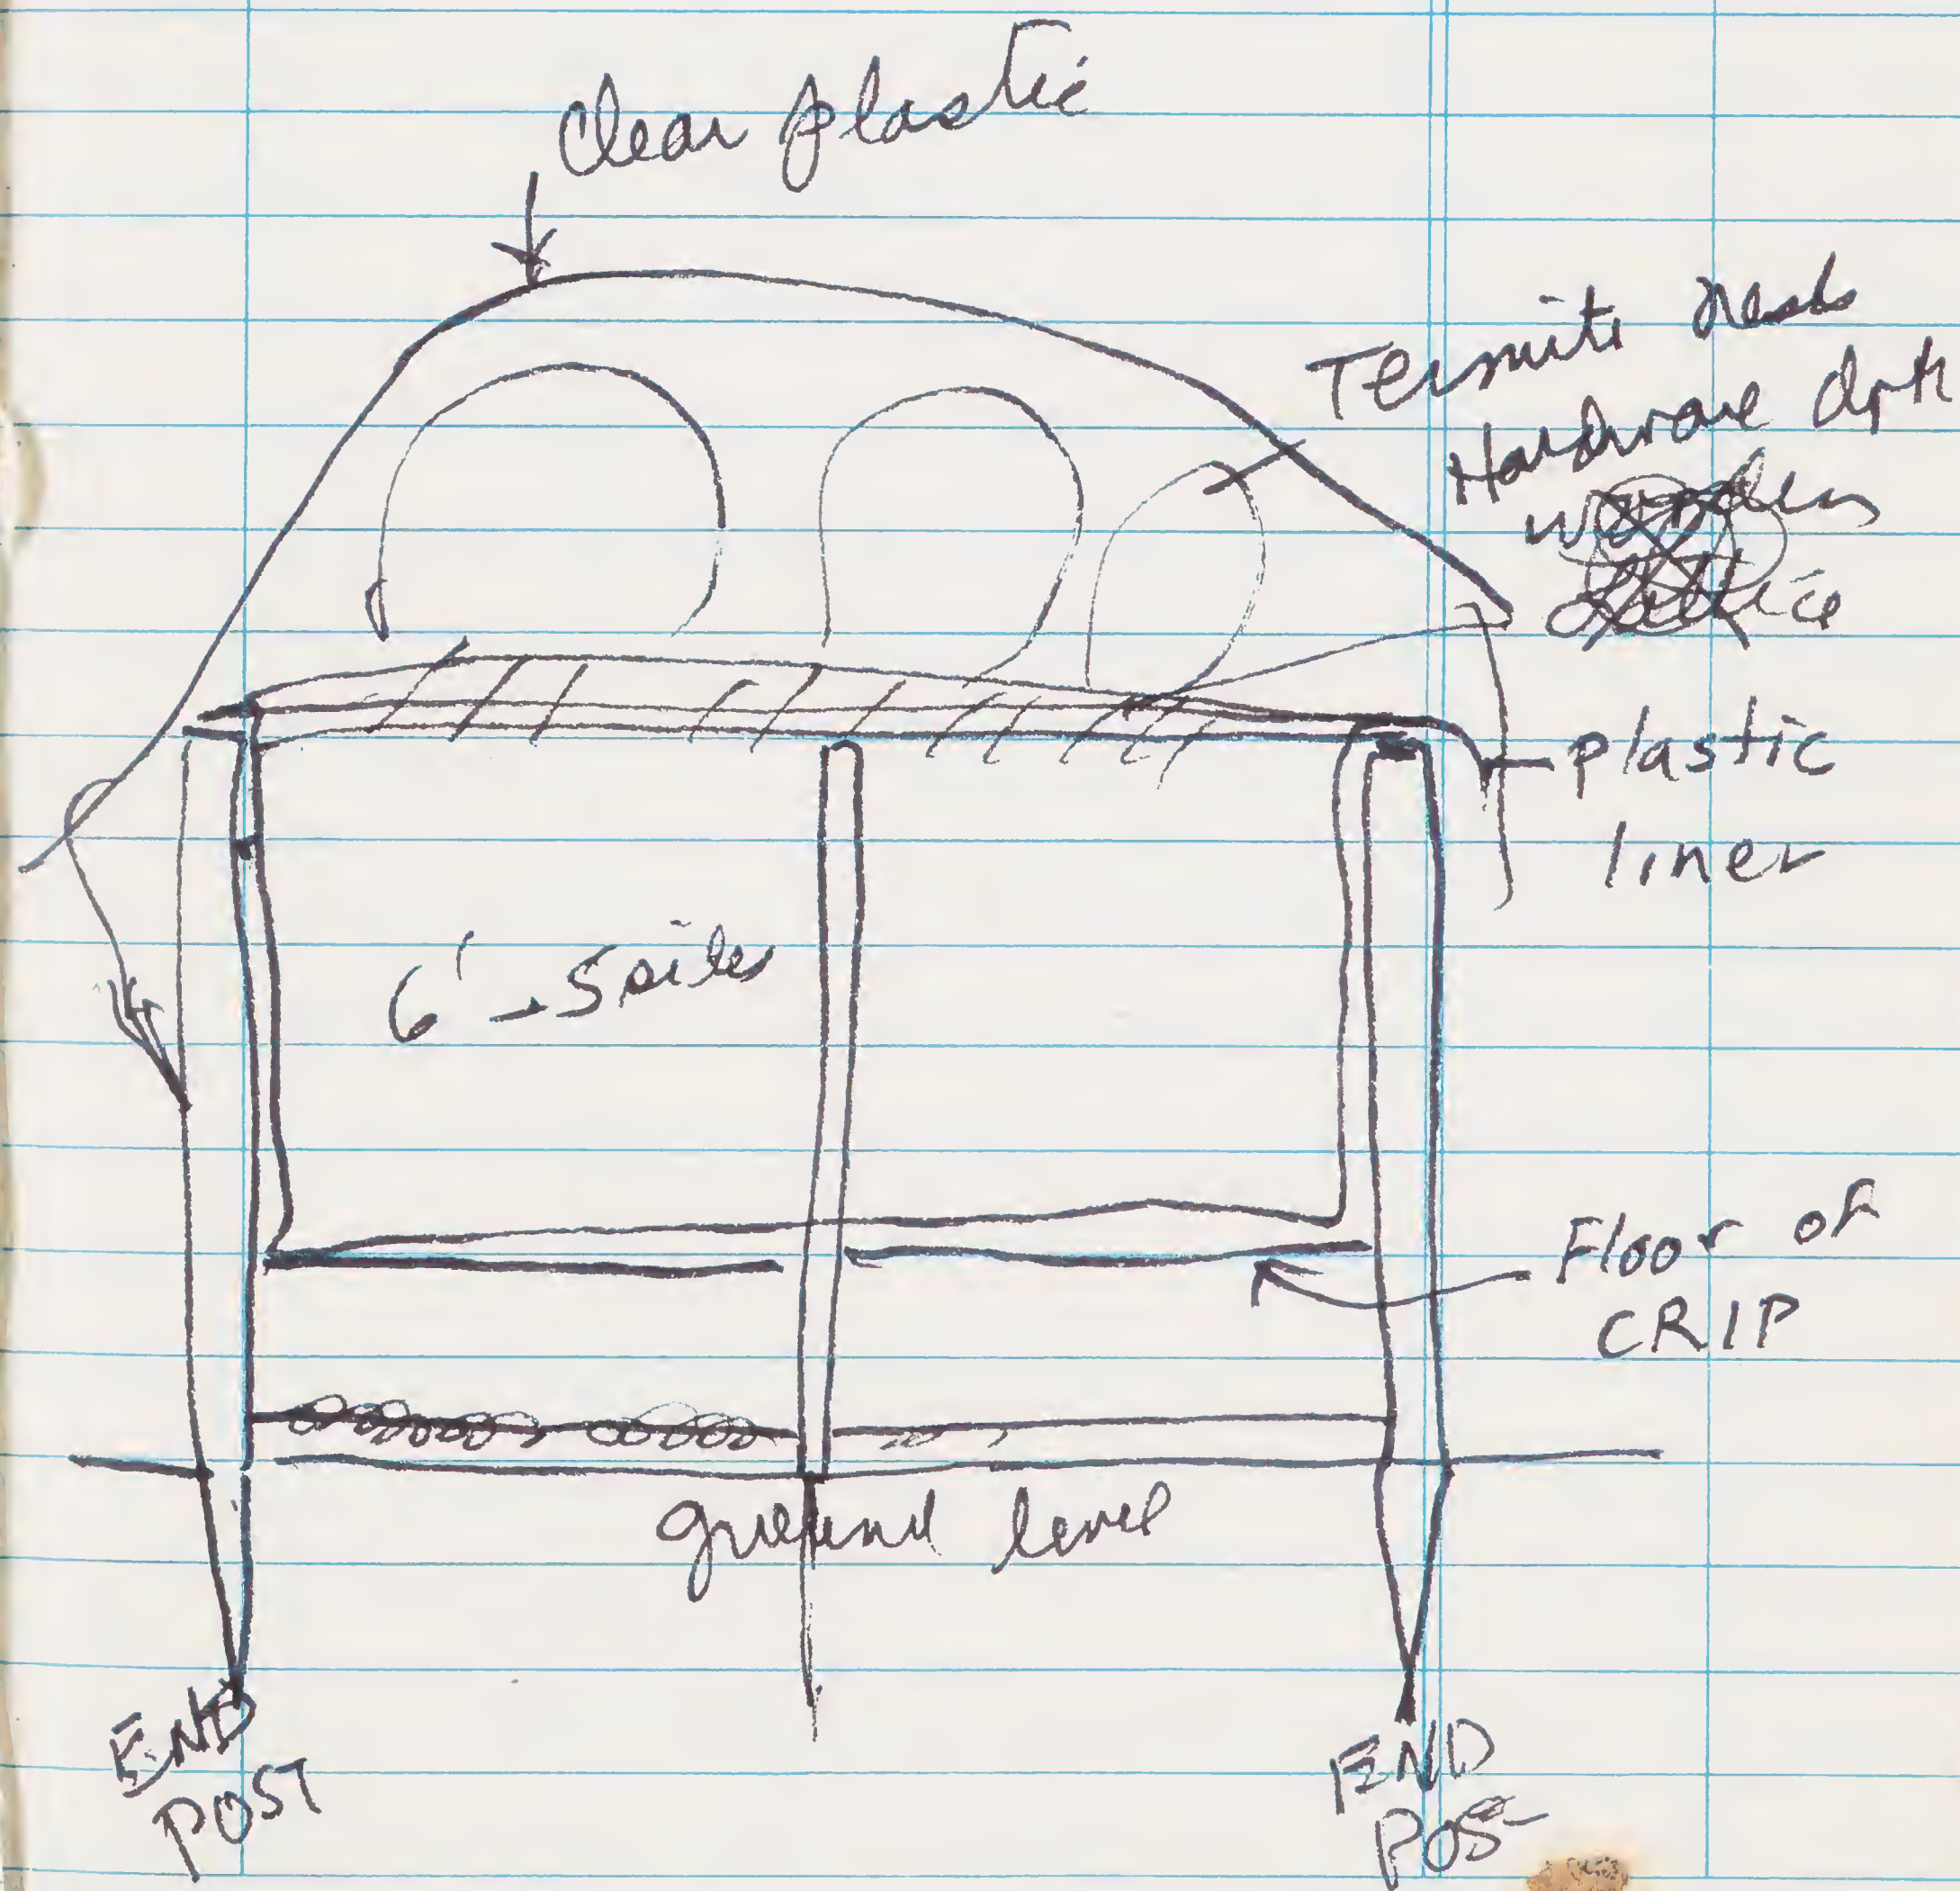 clear plastic
Termite nests
Hardware cloth
wooden
Lattice
plastic
liner
6'
Floor of
CRIP
ground level
END
POST
END
POST